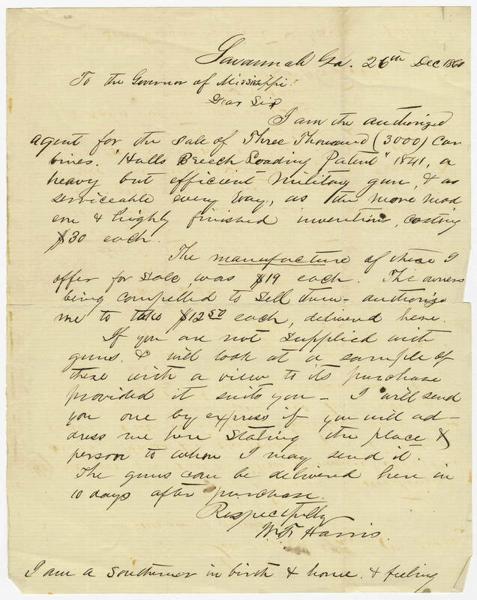 Savannah Ga. 26th Dec 1860
To the Governor of Mississippi
Dear Sir
I am the authorized
agent for the sale of Three Thousand (3000) Car
bines. "Halls Breech Loading Patent" 1841, a
heavy but efficient military gun, & as
serviceable every way, as the more mod
ern & highly finished invention, costing
$30 each.
The manufacture of these I
offer for sale, was $19 each. The owners
being compelled to sell them - authorize
me to take $12.50 each, delivered here.
If you are not supplied with
guns. & will look at a sample of
these with a view to its purchase
provided it suits you - I will send
you one by express if you will ad-
dress me here stating the place &
person to whom I may send it.
The guns can be delivered here in
10 days after purchase.
Respectfully
Harris.
I am a southerner in birth & home. & feeling